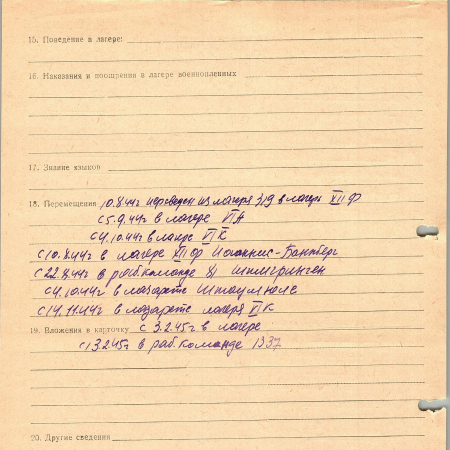 15. Поведение в лагере:
16. Наказания и поощрения в лагере военнопленных
17. Знание языков
18. Перемещения 10.8.44г переведен из лагеря 319 в лагерь XII Ф
С 5.9.44г в лагере VI А
С 4.10.44г в лагере VI К
С 10.8.44г в лагере XII Ф Иоаннис-Баннберг
С 22.8.44г в раб.команде
С 4.10.44г в лазарете Штаумюле
С 14.11.44г в лазарете лагеря VI К
19. Вложения в карточку С 3.2.45г в лагере
С 13.2.45г в раб.команде 1337
20. Другие сведения